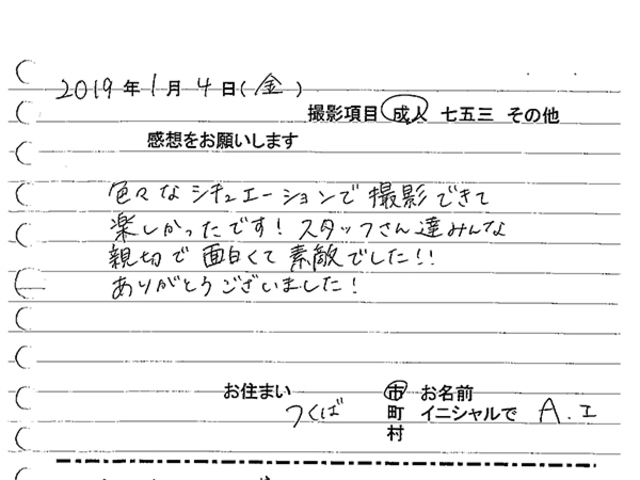 2019年1月4日(金)
撮影項目 成人 七五三 その他
感想をお願いします
色々なシチュエーションで撮影できて
楽しかったです！スタッフさん達みんな
親切で面白くて素敵でした！！
ありがとうございました！
お住まい つくば 市 お名前
町 イニシャルで A.I
村